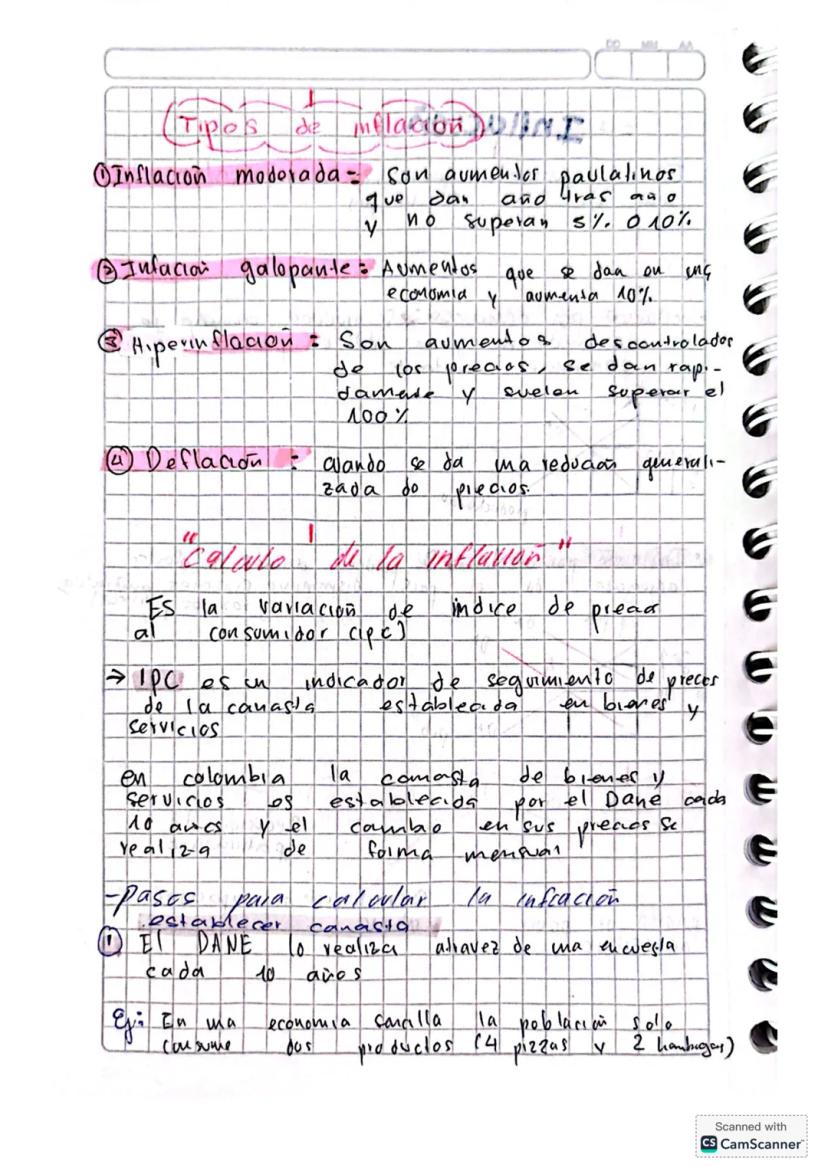 DD MM AA
Tipos de inflación
①Inflación moderada= Son aumentos paulatinos
que dan año tras año
y no superan 5% o 10%
② Inflacion galopante: Aumentos que se dan en una
economia y aumenta 10%
③ Hiperinflación: Son aumentos descontrolados
de los precios, se dan rapi-
damente y suelen superar el
100%
④ Deflación: cuando se da una reducion generali-
zada de precios.
"Calculo de la inflación"
ES la variación de indice de precio
al consumidor (ipc)
→ IPC es un indicador de seguimiento de precios
de la canasta establecida en bienes y
servicios
en colombia la canasta de bienes y
servicios es establecida por el Dane cada
10 años y el cambio en sus precios se
realiza de forma mensual
-pasos para calcular la inflación
establecer canasta
① El DANE lo realiza atravez de una encuesta
cada 10 años
Ej: En una economia sencilla la población solo
consume dos productos (4 pizzas y 2 hamburgas)
Scanned with
CS CamScanner